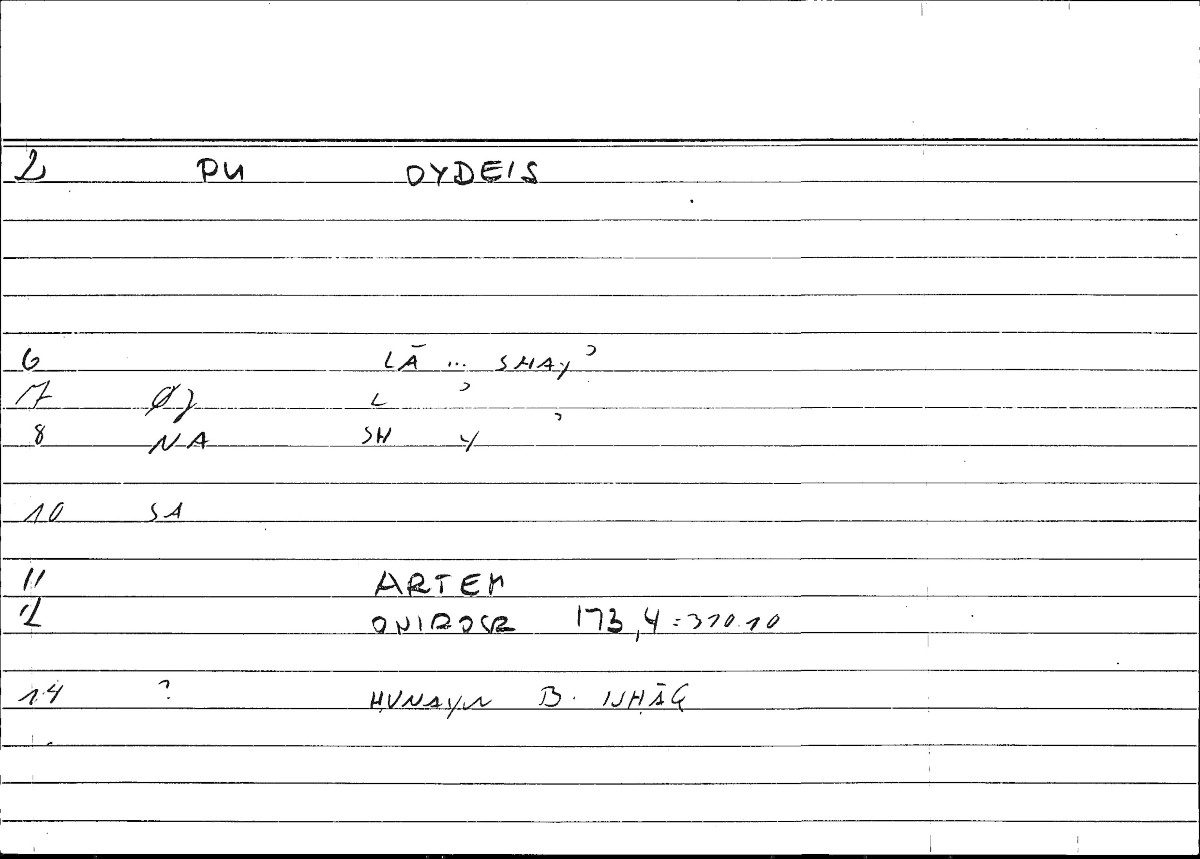 2 PU OYDEIS
6 LĀ ... SHAYʾ
7 L ʾ
8 NA SH Y ʾ
10 SA
11 ARTEM
2 ONIROCR 173,4 = 370.10
14 ? ḤUNAYN B. ISḤĀQ